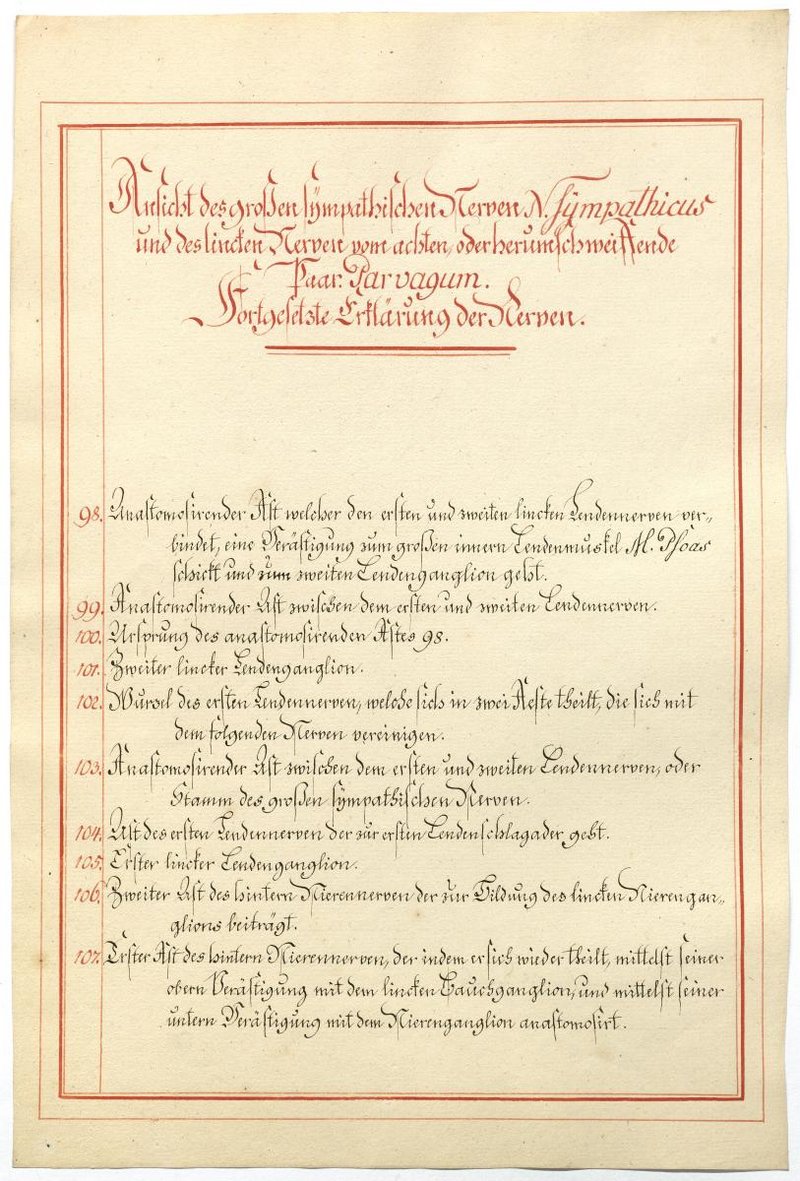 Ansicht des großen sÿmpathischen Nerven N. Sÿmpathicus
und des lincken Nerven vom achten, oder herumschweiffende
Paar. Par vagum.
Fortgesetzte Erklärung der Nerven.
98. Anastomosirender Ast welcher den ersten und zweiten lincken Lendennerven ver-
bindet, eine Verästigung zum großen innern Lendenmuskel M. Psoas
schickt und zum zweiten Lendenganglion geht.
99. Anastomosirender Ast zwischen dem ersten und zweiten Lendennerven.
100. Ursprung des anastomosirenden Astes 98.
101. Zweiter lincker Lendenganglion.
102. Wurzel des ersten Lendennerven, welche sich in zwei Aeste theilt, die sich mit
dem folgenden Nerven vereinigen.
103. Anastomosirender Ast zwischen dem ersten und zweiten Lendennerven, oder
Stamm des großen sympathischen Nerven.
104. Ast des ersten Lendennerven der zur ersten Lendenschlagader geht.
105. Erster lincker Lendenganglion.
106. Zweiter Ast des hintern Nierennerven der zur Bildung des lincken Nierengan-
glions beiträgt.
107. Erster Ast des hintern Nierennerven, der indem er sich wieder theilt, mittelst seiner
obern Verästigung mit dem lincken Bauchganglion, und mittelst seiner
untern Verästigung mit dem Nierenganglion anastomosirt.